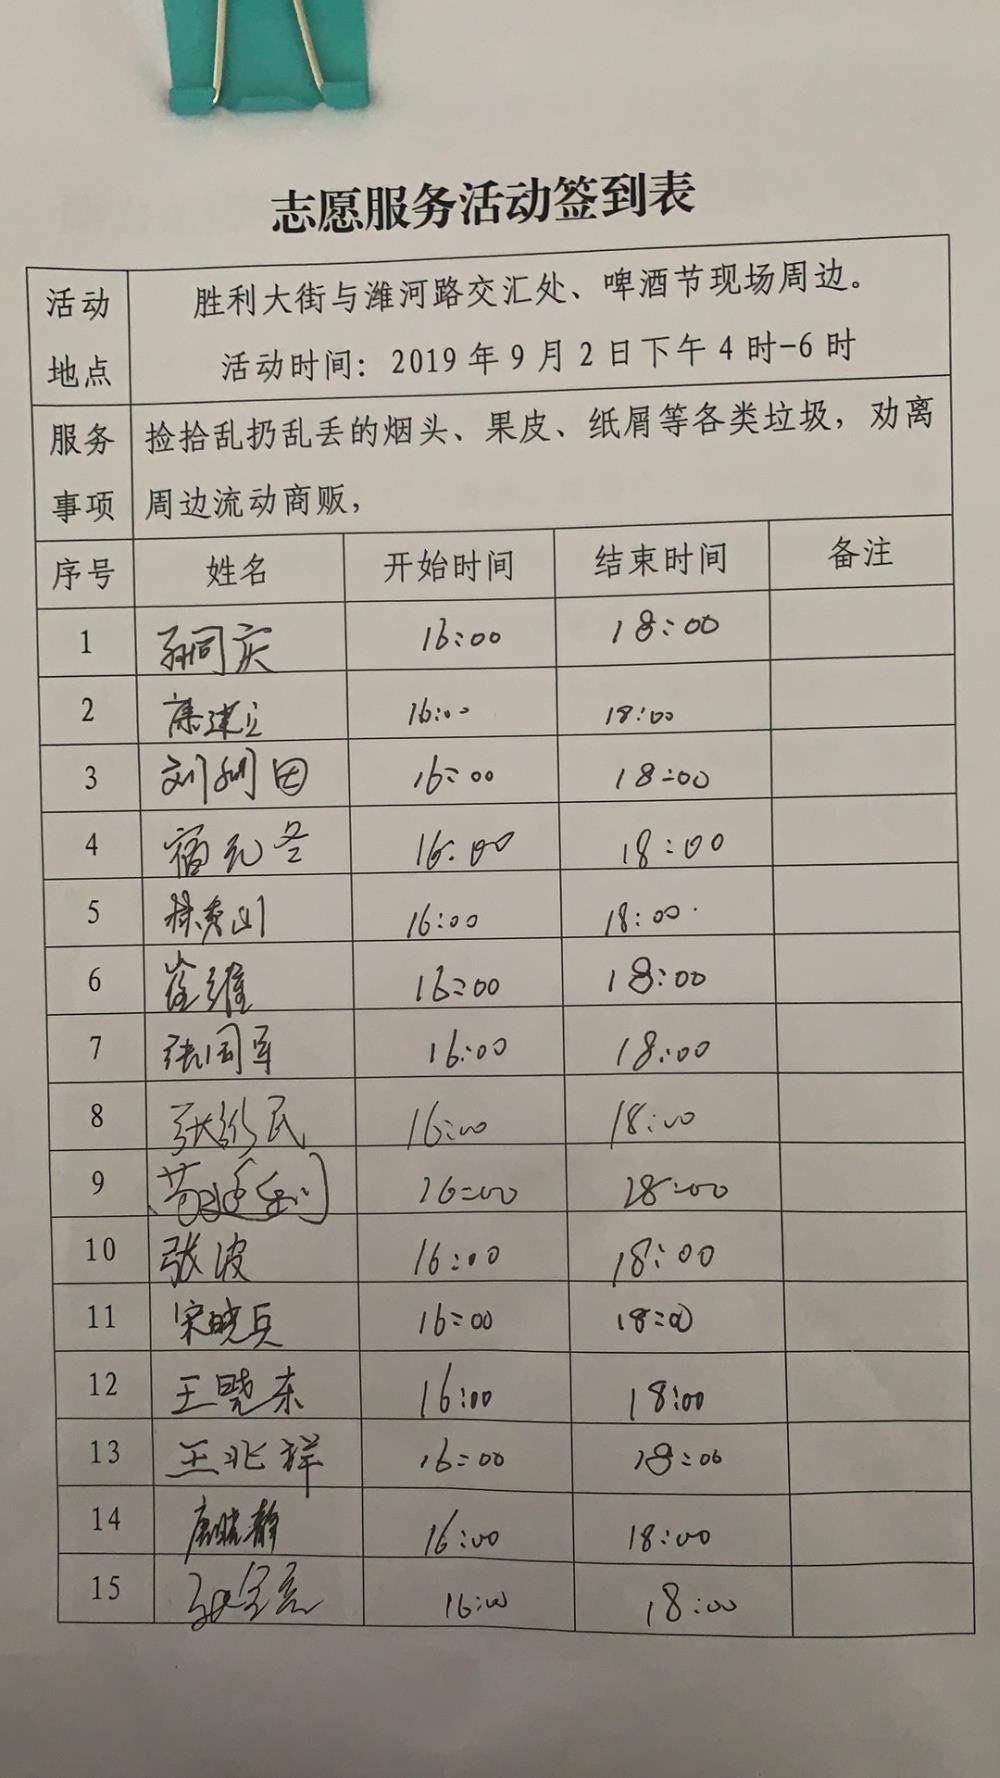 志愿服务活动签到表
活动地点 胜利大街与潍河路交汇处、啤酒节现场周边。
活动时间：2019年9月2日下午4时-6时
服务事项 捡拾乱扔乱丢的烟头、果皮、纸屑等各类垃圾，劝离
周边流动商贩，
序号 姓名 开始时间 结束时间 备注
1 孙同庆 16:00 18:00
2 16:00 18:00
3 16:00 18:00
4 16:00 18:00
5 16:00 18:00
6 崔维 16:00 18:00
7 16:00 18:00
8 16:00 18:00
9 16:00 18:00
10 张波 16:00 18:00
11 宋晓兵 16:00 18:00
12 王晓东 16:00 18:00
13 王兆祥 16:00 18:00
14 16:00 18:00
15 16:00 18:00